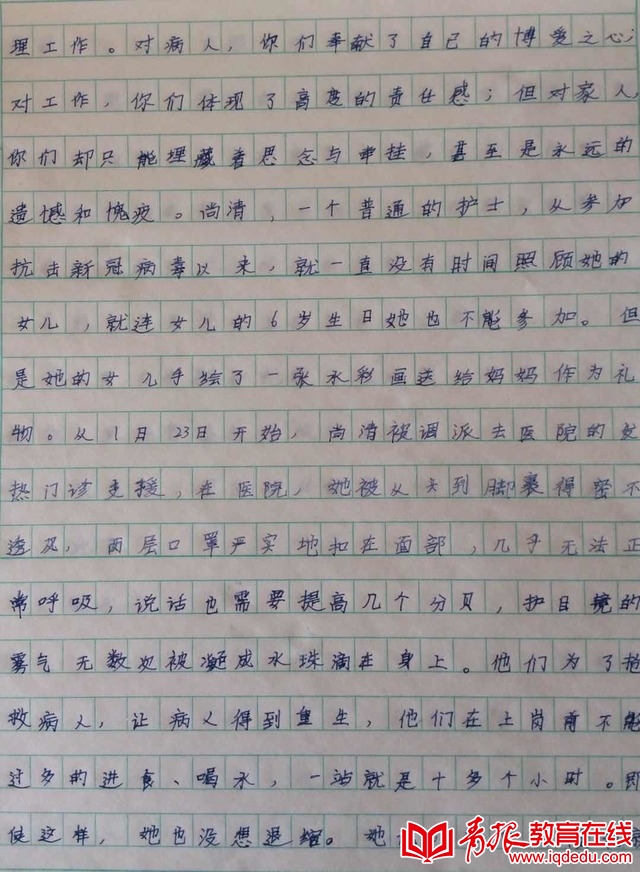 理工作。对病人，你们奉献了自己的博爱之心；
对工作，你们体现了高度的责任感；但对家人，
你们却只能埋藏着思念与牵挂，甚至是永远的
遗憾和愧疚。尚清，一个普通的护士，从参加
抗击新冠病毒以来，就一直没有时间照顾她的
女儿，就连女儿的6岁生日她也不能参加。但
是她的女儿手绘了一张水彩画送给妈妈作为礼
物。从1月23日开始，尚清被调派去医院的发
热门诊支援，在医院，她被从头到脚裹得密不
透风，两层口罩严实地扣在面部，几乎无法正
常呼吸，说话也需要提高几个分贝，护目镜的
雾气无数次被凝成水珠滴在身上。他们为了抢
救病人，让病人得到重生，他们在上岗前不能
过多的进食、喝水，一站就是十多个小时。即
使这样，她也没想退缩。她
青报教育在线
www.iqdedu.com